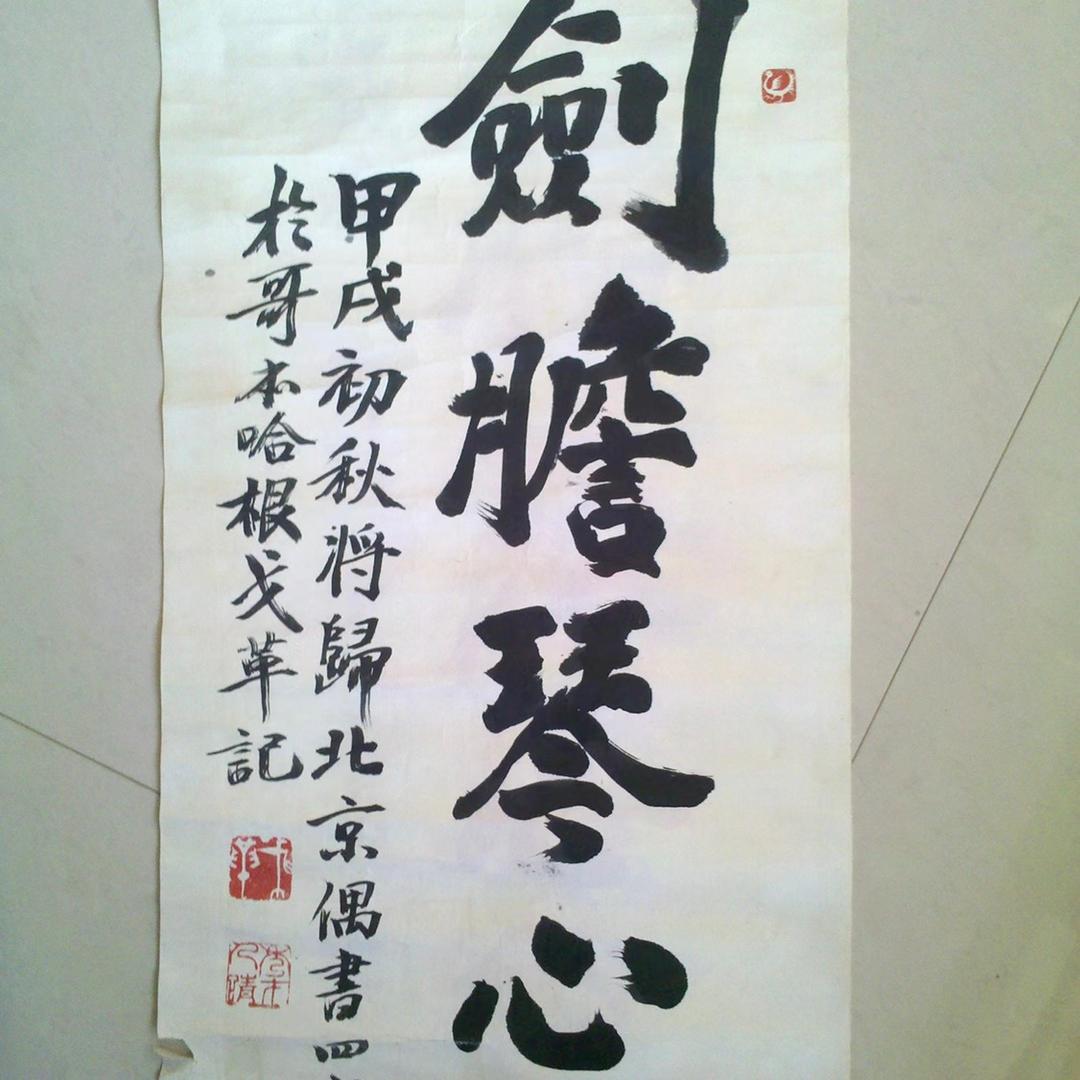 劍膽琴心
甲戌初秋將歸北京偶書四
於哥本哈根戈革記